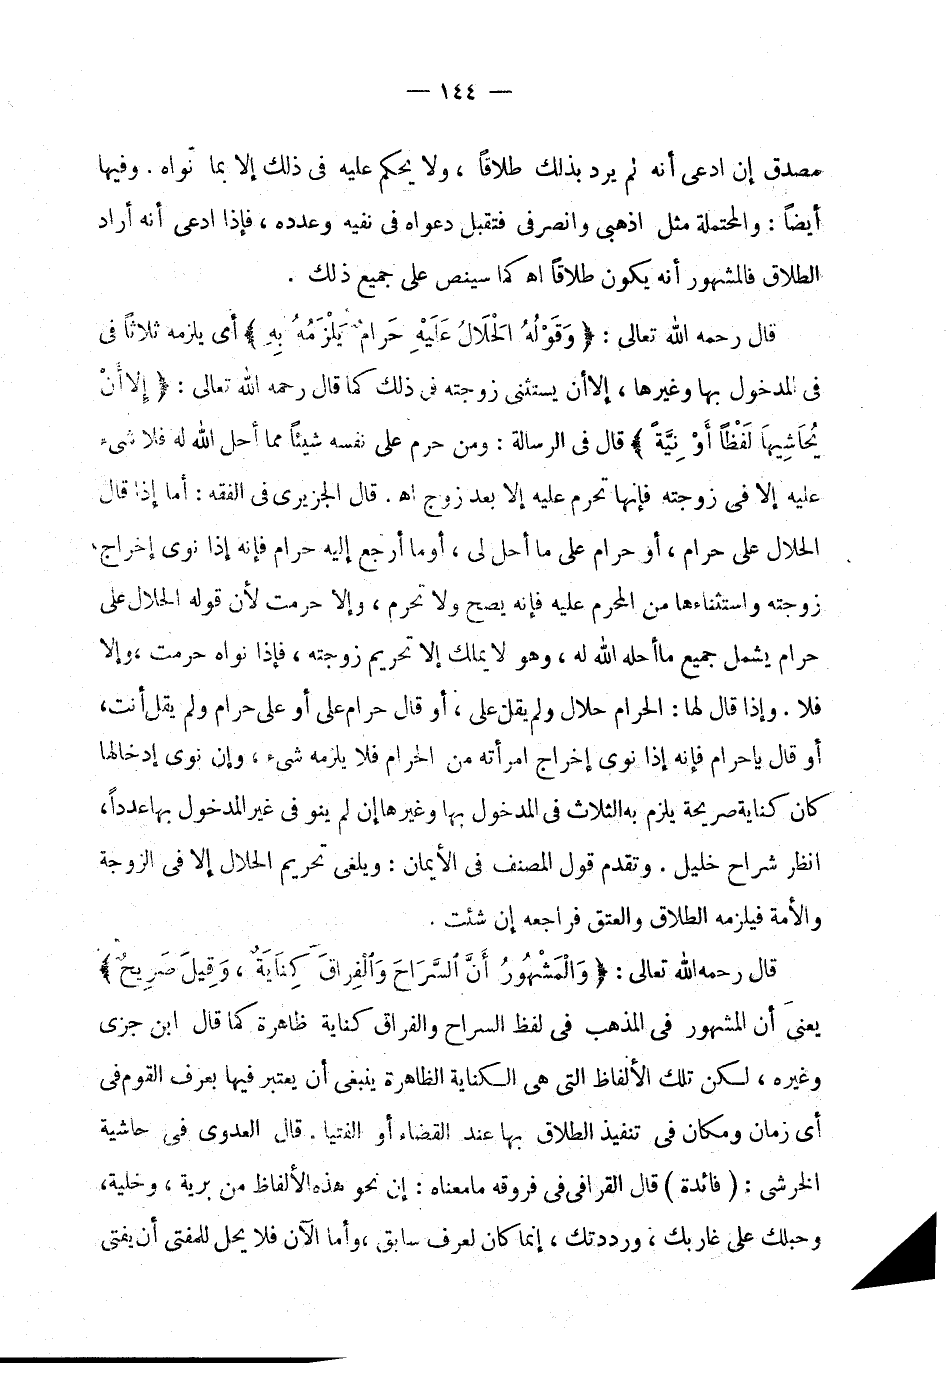 — ١٤٤ —
مصدق إن ادعى أنه لم يرد بذلك طلاقاً ، ولا يحكم عليه فى ذلك إلا بما نواه . وفيها
أيضاً : والمحتملة مثل اذهبى وانصرفى فتقبل دعواه فى نفيه وعدده ، فإذا ادعى أنه أراد
الطلاق فالمشهور أنه يكون طلاقاً اه كما سينص على جميع ذلك .
قال رحمه الله تعالى : ﴿ وَقَوْلُهُ الْحَلَالُ عَلَيْهِ حَرَامٌ يَلْزَمُهُ بِهِ ﴾ أى يلزمه ثلاثاً فى
فى المدخول بها وغيرها ، إلاأن يستثنى زوجته فى ذلك كما قال رحمه الله تعالى : ﴿ إِلاأَنْ
يُحَاشِيهَا لَفْظاً أَوْ نِيَّةً ﴾ قال فى الرسالة : ومن حرم على نفسه شيئاً مما أحل الله له فلا شىء
عليه إلا فى زوجته فإنها تحرم عليه إلا بعد زوج اه . قال الجزيرى فى الفقه : أما إذا قال
الحلال على حرام ، أو حرام على ما أحل لى ، أوما أرجع إليه حرام فإنه إذا نوى إخراج
زوجته واستثناءها من المحرم عليه فإنه يصح ولا تحرم ، وإلا حرمت لأن قوله الحلال على
حرام يشمل جميع ماأحله الله له ، وهو لايملك إلا تحريم زوجته ، فإذا نواه حرمت ،وإلا
فلا . وإذا قال لها : الحرام حلال ولم يقل على ، أو قال حرام على أو على حرام ولم يقل أنت،
أو قال ياحرام فإنه إذا نوى إخراج امرأته من الحرام فلا يلزمه شىء ، وإن نوى إدخالها
كان كناية صريحة يلزم به الثلاث فى المدخول بها وغيرها إن لم ينو فى غير المدخول بها عدداً،
انظر شراح خليل . وتقدم قول المصنف فى الأيمان : ويلغى تحريم الحلال إلا فى الزوجة
والأمة فيلزمه الطلاق والعتق فراجعه إن شئت .
قال رحمه الله تعالى : ﴿ وَالْمَشْهُورُ أَنَّ السَّرَاحَ وَالْفِرَاقَ كِنَايَةٌ ، وَقِيلَ صَرِيحٌ ﴾
يعنى أن المشهور فى المذهب فى لفظ السراح والفراق كناية ظاهرة كما قال ابن جزى
وغيره ، لكن تلك الألفاظ التى هى الكناية الظاهرة ينبغى أن يعتبر فيها بعرف القوم فى
أى زمان ومكان فى تنفيذ الطلاق بها عند القضاء أو الفتيا . قال العدوى فى حاشية
الخرشى : ( فائدة ) قال القرافى فى فروقه مامعناه : إن نحو هذه الألفاظ من برية ، وخلية،
وحبلك على غاربك ، ورددتك ، إنما كان لعرف سابق ،وأما الآن فلا يحل للمفتى أن يفتى